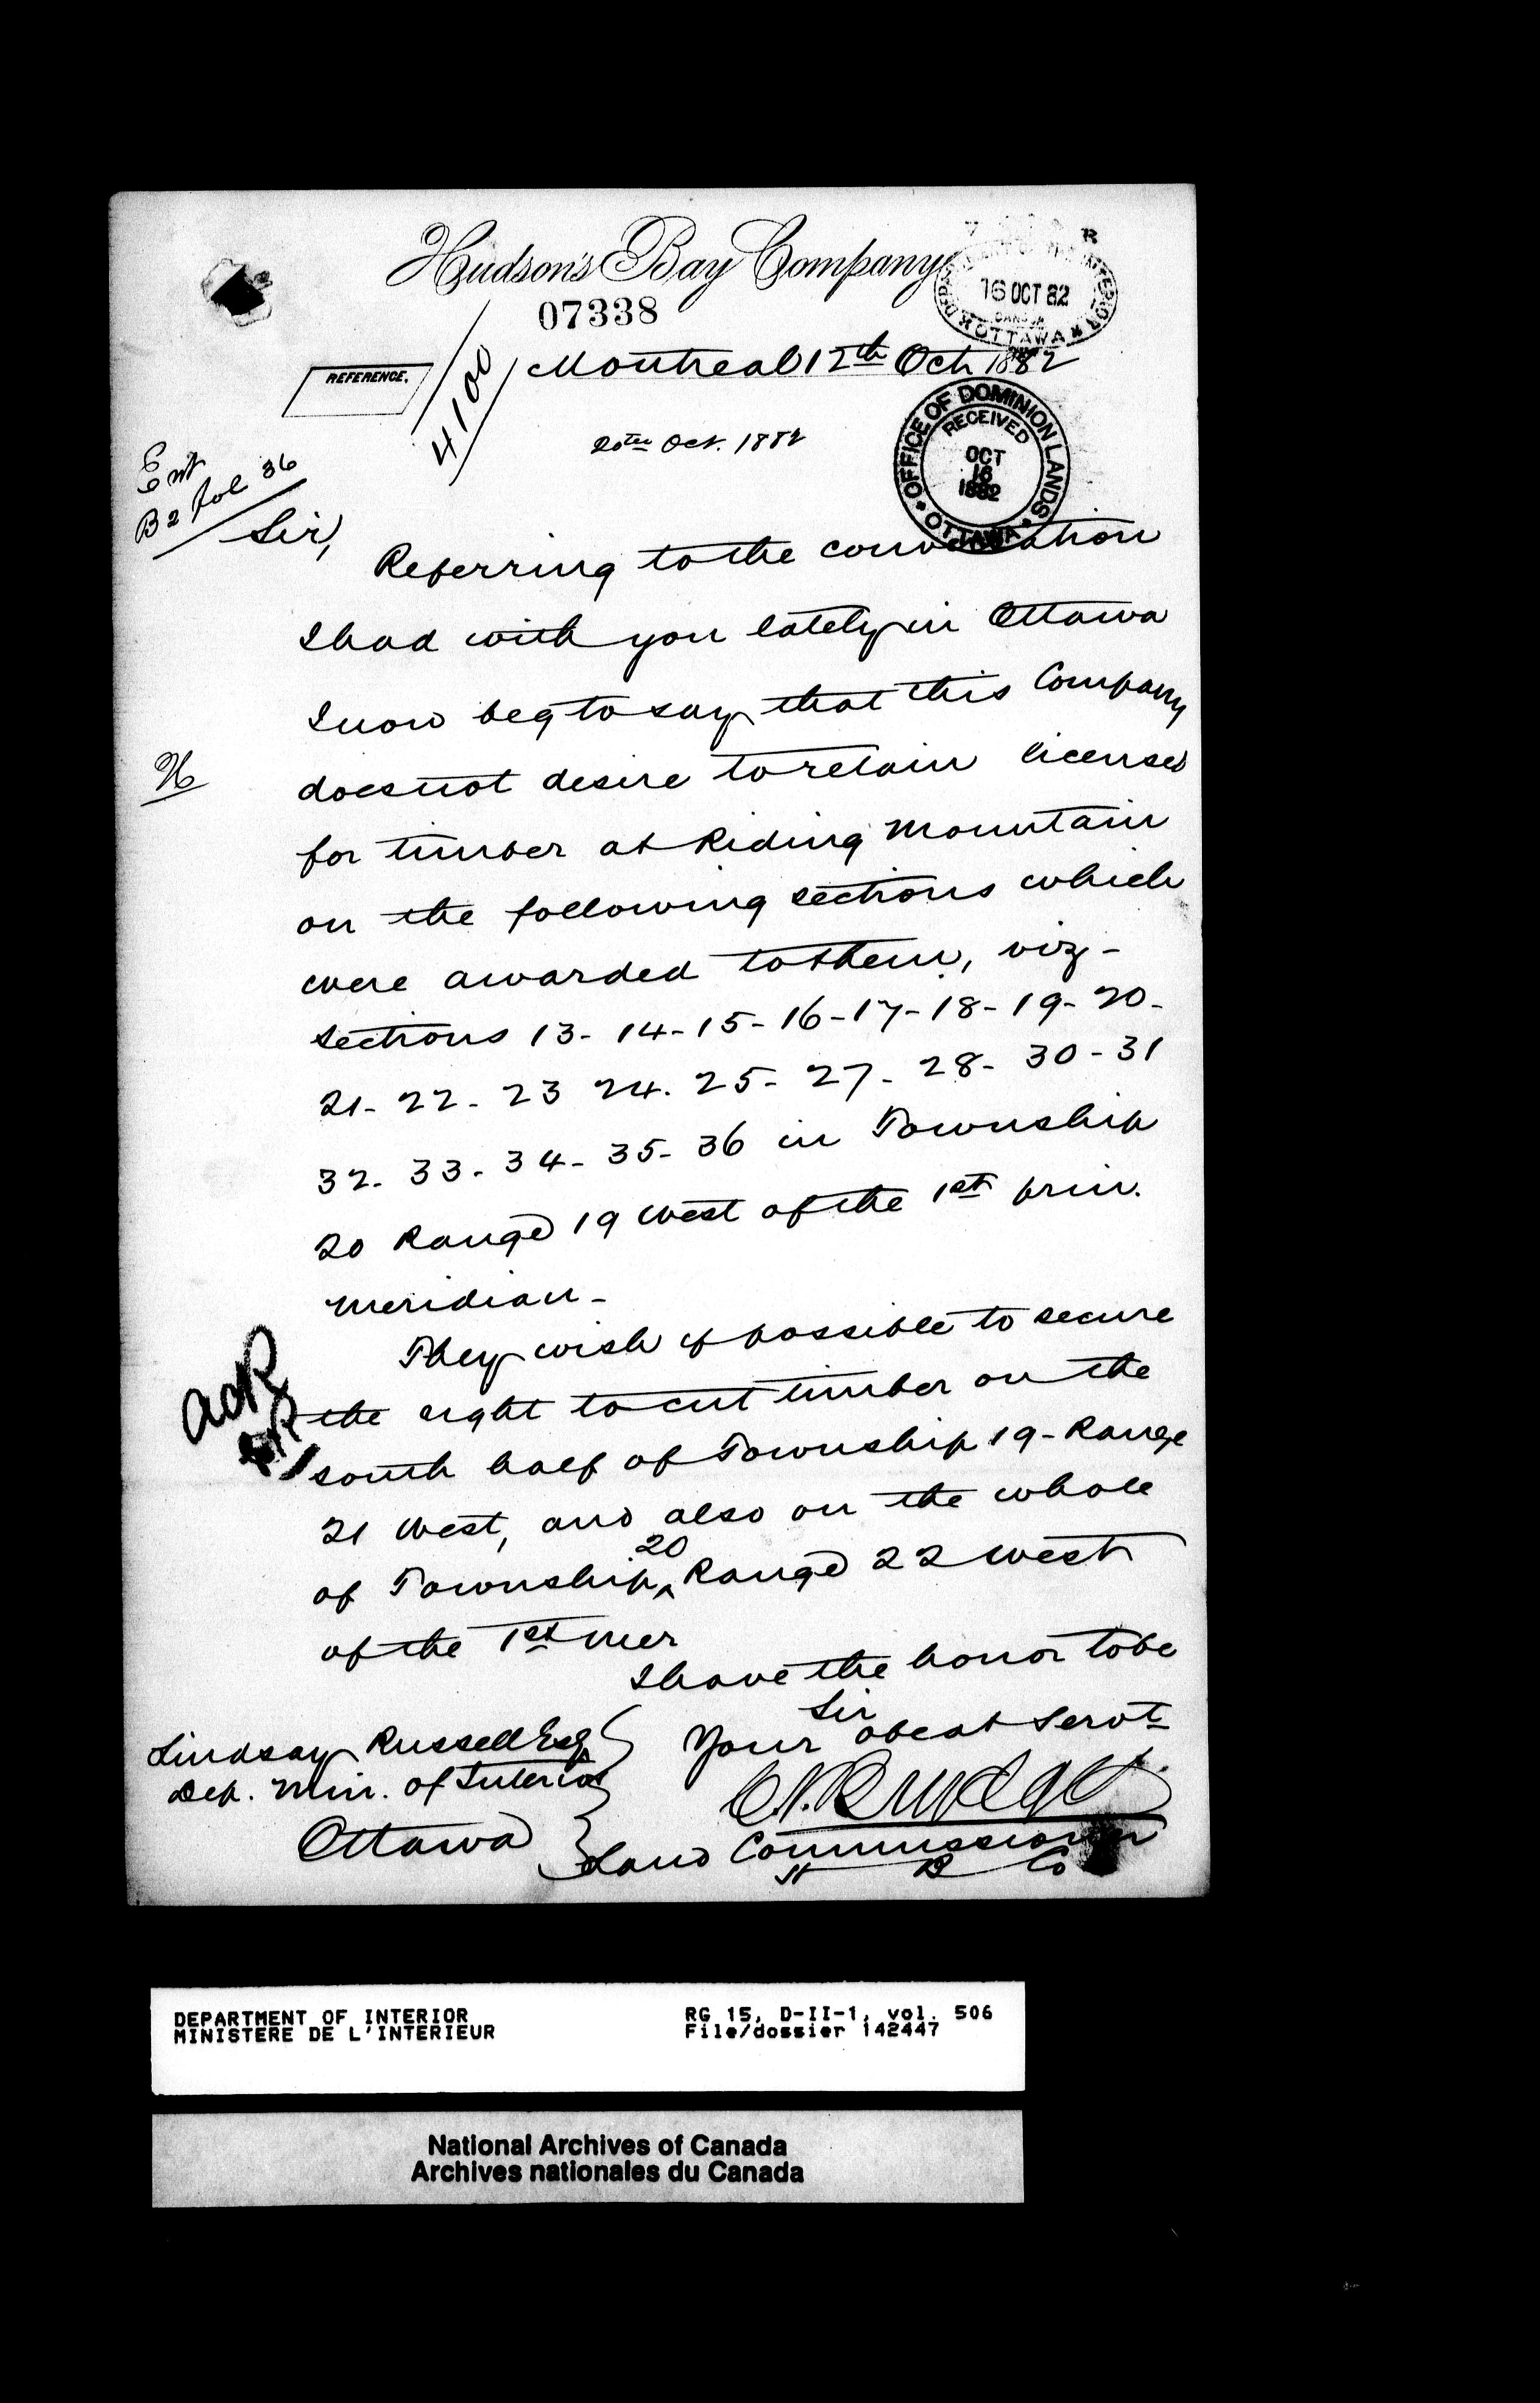 Hudson's Bay Company
07338
DEPARTMENT OF THE INTERIOR
16 OCT 82
CANADA
OTTAWA
REFERENCE.
4100
Montreal 12th Oct 1882
20th Oct. 1882
OFFICE OF DOMINION LANDS
RECEIVED
OCT
16
1882
OTTAWA
Ent
B2 fol 36
Sir,
Referring to the conversation
I had with you lately in Ottawa
I now beg to say that this Company
does not desire to retain licenses
for timber at Riding Mountain
on the following sections which
were awarded to them, viz -
Sections 13- 14-15-16-17-18-19-20-
21- 22- 23 24. 25- 27- 28- 30-31
32- 33- 34- 35- 36 in Township
20 Range 19 West of the 1st prin.
meridian -
They wish if possible to secure
the right to cut timber on the
south half of Township 19- Range
21 West, and also on the whole
of Township 20 Range 22 West
of the 1st mer
I have the honor to be
Sir
Your obedt Servt
C.J. Brydges
Land Commissioner
H B Co
Lindsay Russell Esq
Dep. Min. of Interior
Ottawa
DEPARTMENT OF INTERIOR
MINISTERE DE L'INTERIEUR
RG 15, D-II-1, vol. 506
File/dossier 142447
National Archives of Canada
Archives nationales du Canada